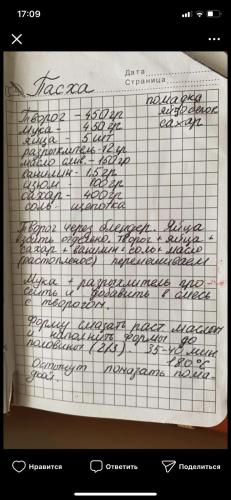 17:09
Дата
Страница
Пасха
Творог - 450 гр
Мука - 450 гр
Яйца - 5 шт
разрыхлитель-12гр
масло слив.-150гр
ванилин - 1,5 гр
изюм - 100 гр
сахар - 400 гр
соль - щепотка
помадка
яйцо белок
сахар
Творог через блендер. Яйца
взбить отдельно. Творог + яйца +
сахар + ванилин + соль + масло
(растопленое) перемешиваем
Мука + разрыхлитель про-
сеить и добавить в смесь
с творогом.
Форму смазать раст. маслом
и наполнить формы до
половины (2/3). 35-40 мин
180°С
Остынут помазать пома-
дкой.
Нравится
Ответить
Поделиться